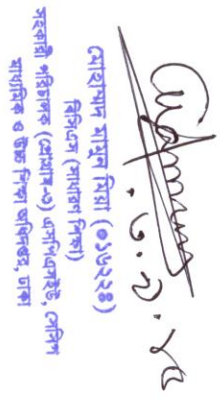 ৩.২.২০
মোহাম্মদ মামুন মিয়া (০১৬২২৪)
বিসিএস (সাধারণ শিক্ষা)
সহকারী পরিচালক (প্রোগ্রাম-৩) এসপিএসইউ, সেসিপ
মাধ্যমিক ও উচ্চ শিক্ষা অধিদপ্তর, ঢাকা